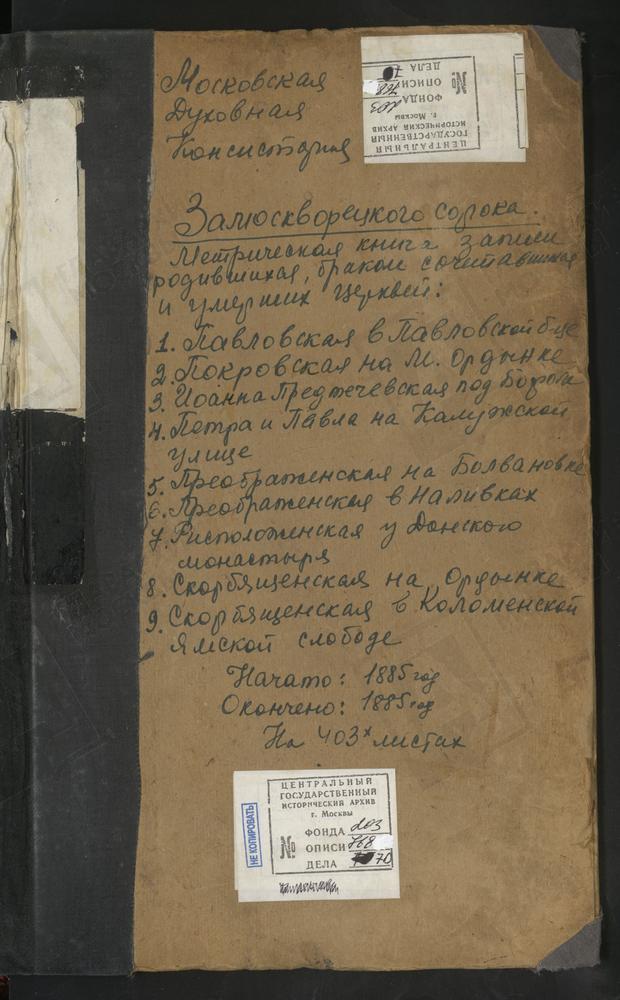 Московская
Духовная
Консистория
ЦЕНТРАЛЬНЫЙ
ГОСУДАРСТВЕННЫЙ
ИСТОРИЧЕСКИЙ АРХИВ
г. Москвы
№
ФОНДА 203
ОПИСИ 768
ДЕЛА
Замоскворецкого сорока.
Метрическая книга записи
родившихся, браком сочитавшихся
и умерших церквей:
1. Павловская в Павловской б-це
2. Покровская на М. Ордынке
3. Иоанна Предтечевская под Бором
4. Петра и Павла на Калужской
улице
5. Преображенская на Болвановке
6. Преображенская в Наливках
7. Рисположенская у Донского
монастыря
8. Скорбященская на Ордынке
9. Скорбященская в Коломенской
Ямской слободе
Начато: 1885 год
Окончено: 1885 год
На 403х листах
НЕ КОПИРОВАТЬ
ЦЕНТРАЛЬНЫЙ
ГОСУДАРСТВЕННЫЙ
ИСТОРИЧЕСКИЙ АРХИВ
г. Москвы
№
ФОНДА 203
ОПИСИ 768
ДЕЛА 70